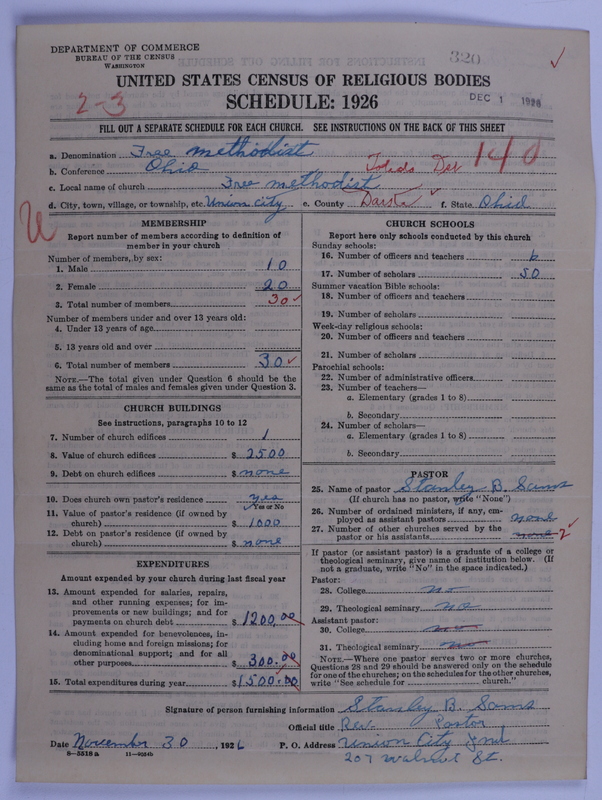 DEPARTMENT OF COMMERCE
BUREAU OF THE CENSUS
WASHINGTON
320
UNITED STATES CENSUS OF RELIGIOUS BODIES
SCHEDULE: 1926
2-3
DEC 1 1926
FILL OUT A SEPARATE SCHEDULE FOR EACH CHURCH. SEE INSTRUCTIONS ON THE BACK OF THIS SHEET
a. Denomination Free methodist
b. Conference Ohio 140
c. Local name of church Free methodist
d. City, town, village, or township, etc. Union City e. County f. State Ohio
MEMBERSHIP
Report number of members according to definition of
member in your church
Number of members, by sex:
1. Male 10
2. Female 20
3. Total number of members 30
Number of members under and over 13 years old:
4. Under 13 years of age
5. 13 years old and over
6. Total number of members 30
NOTE.—The total given under Question 6 should be the
same as the total of males and females given under Question 3.
CHURCH BUILDINGS
See instructions, paragraphs 10 to 12
7. Number of church edifices 1
8. Value of church edifices $ 2500
9. Debt on church edifices $ none
10. Does church own pastor's residence yes
Yes or No
11. Value of pastor's residence (if owned by
church) $ 1000
12. Debt on pastor's residence (if owned by
church) $ none
EXPENDITURES
Amount expended by your church during last fiscal year
13. Amount expended for salaries, repairs,
and other running expenses; for im-
provements or new buildings; and for
payments on church debt $ 1200.00
14. Amount expended for benevolences, in-
cluding home and foreign missions; for
denominational support; and for all
other purposes $ 300.00
15. Total expenditures during year $ 1500.00
CHURCH SCHOOLS
Report here only schools conducted by this church
Sunday schools:
16. Number of officers and teachers 6
17. Number of scholars 50
Summer vacation Bible schools:
18. Number of officers and teachers
19. Number of scholars
Week-day religious schools:
20. Number of officers and teachers
21. Number of scholars
Parochial schools:
22. Number of administrative officers
23. Number of teachers—
a. Elementary (grades 1 to 8)
b. Secondary
24. Number of scholars—
a. Elementary (grades 1 to 8)
b. Secondary
PASTOR
25. Name of pastor Stanley B. Sams
(If church has no pastor, write "None")
26. Number of ordained ministers, if any, em-
ployed as assistant pastors none
27. Number of other churches served by the
pastor or his assistants none 2
If pastor (or assistant pastor) is a graduate of a college or
theological seminary, give name of institution below. (If
not a graduate, write "No" in the space indicated.)
Pastor:
28. College no
29. Theological seminary no
Assistant pastor:
30. College no
31. Theological seminary no
NOTE.—Where one pastor serves two or more churches,
Questions 28 and 29 should be answered only on the schedule
for one of the churches; on the schedules for the other churches,
write "See schedule for church."
Signature of person furnishing information Stanley B. Sams
Official title Rev. Pastor
Date November 30, 1926 P. O. Address Union City Ind
8-5518a 11-9524b 207 Walnut St.